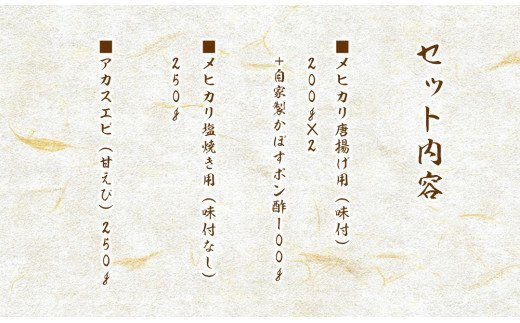 セット内容
■メヒカリ唐揚げ用（味付）
200g×2
+自家製かぼすポン酢100g
■メヒカリ塩焼き用（味付なし）
250g
■アカスエビ（甘えび）250g